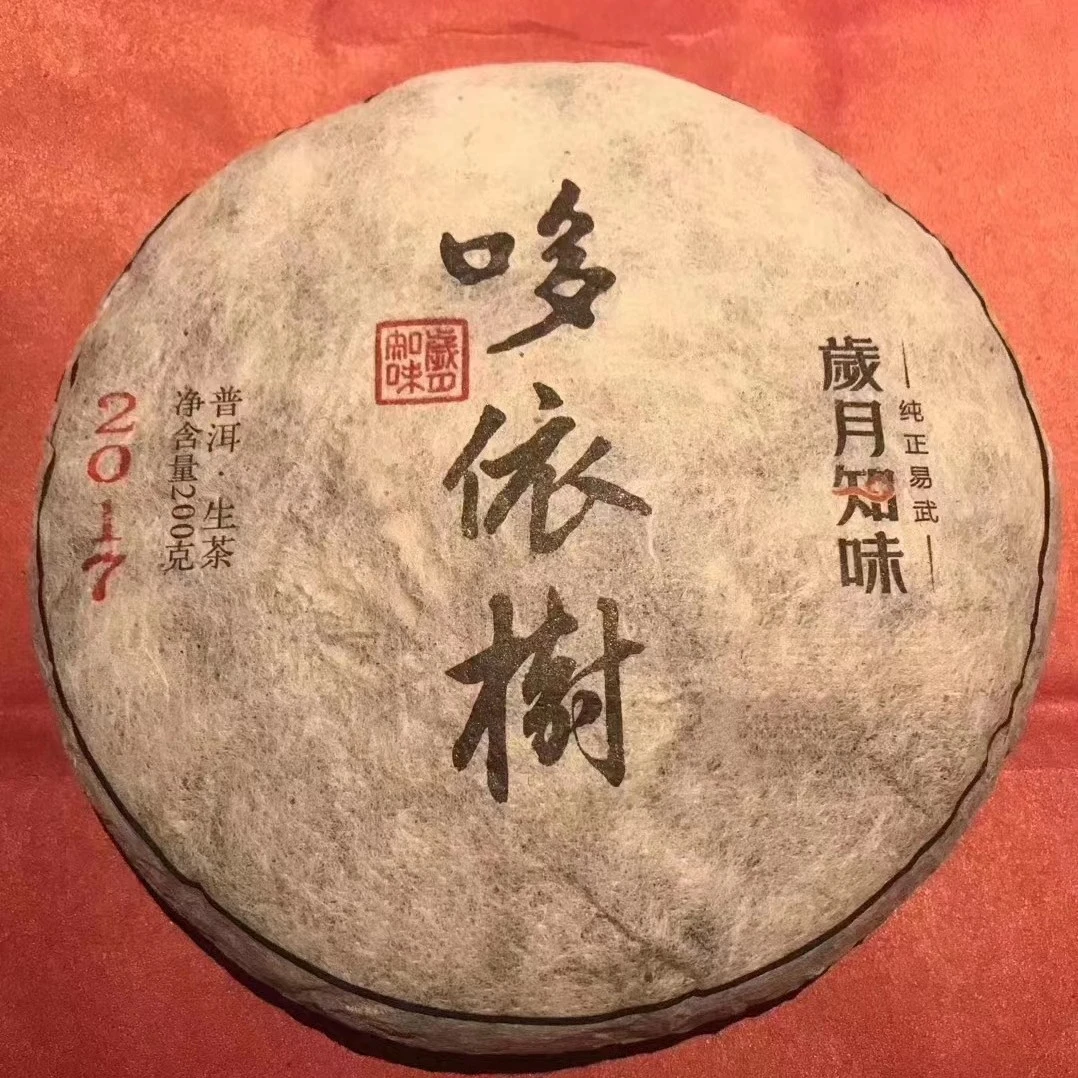 纯正易武
歲月知味
哆依樹
歲月
知味
普洱·生茶
净含量200克
2017